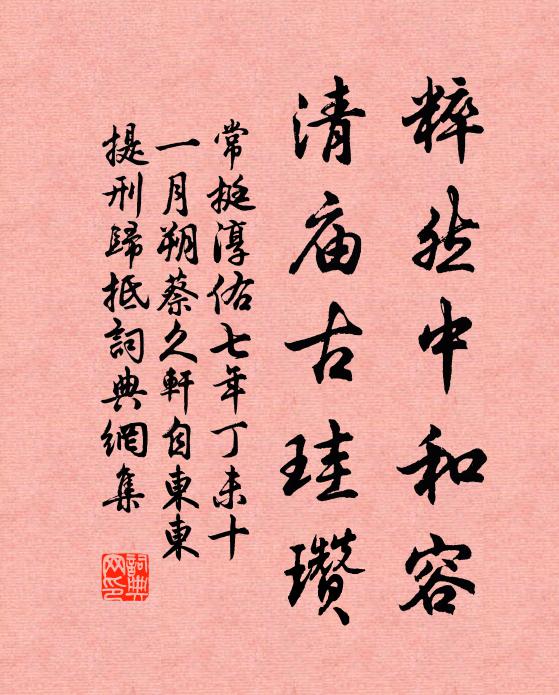 粹然中和容
清庙古珪瓒
常挺淳佑七年丁未十
一月朔蔡久軒自東東
提刑歸抵詞典網集
詞典
网印